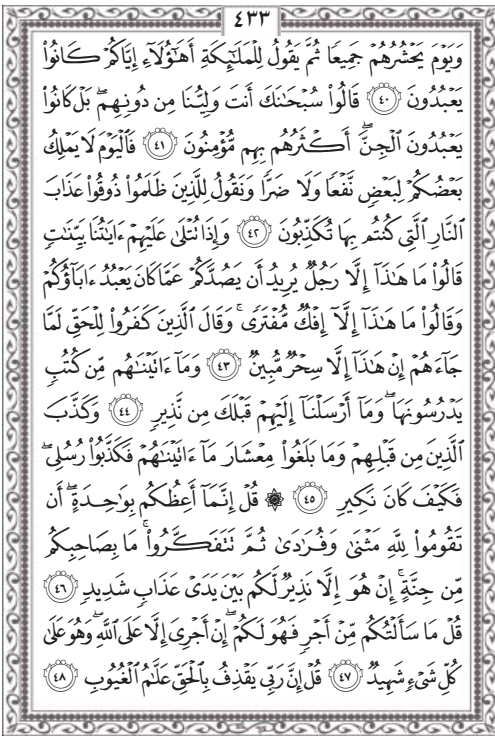 ٤٣٣
وَيَوْمَ يَحْشُرُهُمْ جَمِيعًا ثُمَّ يَقُولُ لِلْمَلَٰٓئِكَةِ أَهَٰٓؤُلَآءِ إِيَّاكُمْ كَانُوا۟
يَعْبُدُونَ ٤٠ قَالُوا۟ سُبْحَٰنَكَ أَنتَ وَلِيُّنَا مِن دُونِهِم ۖ بَلْ كَانُوا۟
يَعْبُدُونَ ٱلْجِنَّ ۖ أَكْثَرُهُم بِهِم مُّؤْمِنُونَ ٤١ فَٱلْيَوْمَ لَا يَمْلِكُ
بَعْضُكُمْ لِبَعْضٍ نَّفْعًا وَلَا ضَرًّا وَنَقُولُ لِلَّذِينَ ظَلَمُوا۟ ذُوقُوا۟ عَذَابَ
ٱلنَّارِ ٱلَّتِى كُنتُم بِهَا تُكَذِّبُونَ ٤٢ وَإِذَا تُتْلَىٰ عَلَيْهِمْ ءَايَٰتُنَا بَيِّنَٰتٍ
قَالُوا۟ مَا هَٰذَآ إِلَّا رَجُلٌ يُرِيدُ أَن يَصُدَّكُمْ عَمَّا كَانَ يَعْبُدُ ءَابَآؤُكُمْ
وَقَالُوا۟ مَا هَٰذَآ إِلَّآ إِفْكٌ مُّفْتَرًى ۚ وَقَالَ ٱلَّذِينَ كَفَرُوا۟ لِلْحَقِّ لَمَّا
جَآءَهُمْ إِنْ هَٰذَآ إِلَّا سِحْرٌ مُّبِينٌ ٤٣ وَمَآ ءَاتَيْنَٰهُم مِّن كُتُبٍ
يَدْرُسُونَهَا ۖ وَمَآ أَرْسَلْنَآ إِلَيْهِمْ قَبْلَكَ مِن نَّذِيرٍ ٤٤ وَكَذَّبَ
ٱلَّذِينَ مِن قَبْلِهِمْ وَمَا بَلَغُوا۟ مِعْشَارَ مَآ ءَاتَيْنَٰهُمْ فَكَذَّبُوا۟ رُسُلِى ۖ
فَكَيْفَ كَانَ نَكِيرِ ٤٥ ۞ قُلْ إِنَّمَآ أَعِظُكُم بِوَٰحِدَةٍ ۖ أَن
تَقُومُوا۟ لِلَّهِ مَثْنَىٰ وَفُرَٰدَىٰ ثُمَّ تَتَفَكَّرُوا۟ ۚ مَا بِصَاحِبِكُم
مِّن جِنَّةٍ ۚ إِنْ هُوَ إِلَّا نَذِيرٌ لَّكُم بَيْنَ يَدَىْ عَذَابٍ شَدِيدٍ ٤٦
قُلْ مَا سَأَلْتُكُم مِّنْ أَجْرٍ فَهُوَ لَكُمْ ۖ إِنْ أَجْرِىَ إِلَّا عَلَى ٱللَّهِ ۖ وَهُوَ عَلَىٰ
كُلِّ شَىْءٍ شَهِيدٌ ٤٧ قُلْ إِنَّ رَبِّى يَقْذِفُ بِٱلْحَقِّ عَلَّٰمُ ٱلْغُيُوبِ ٤٨